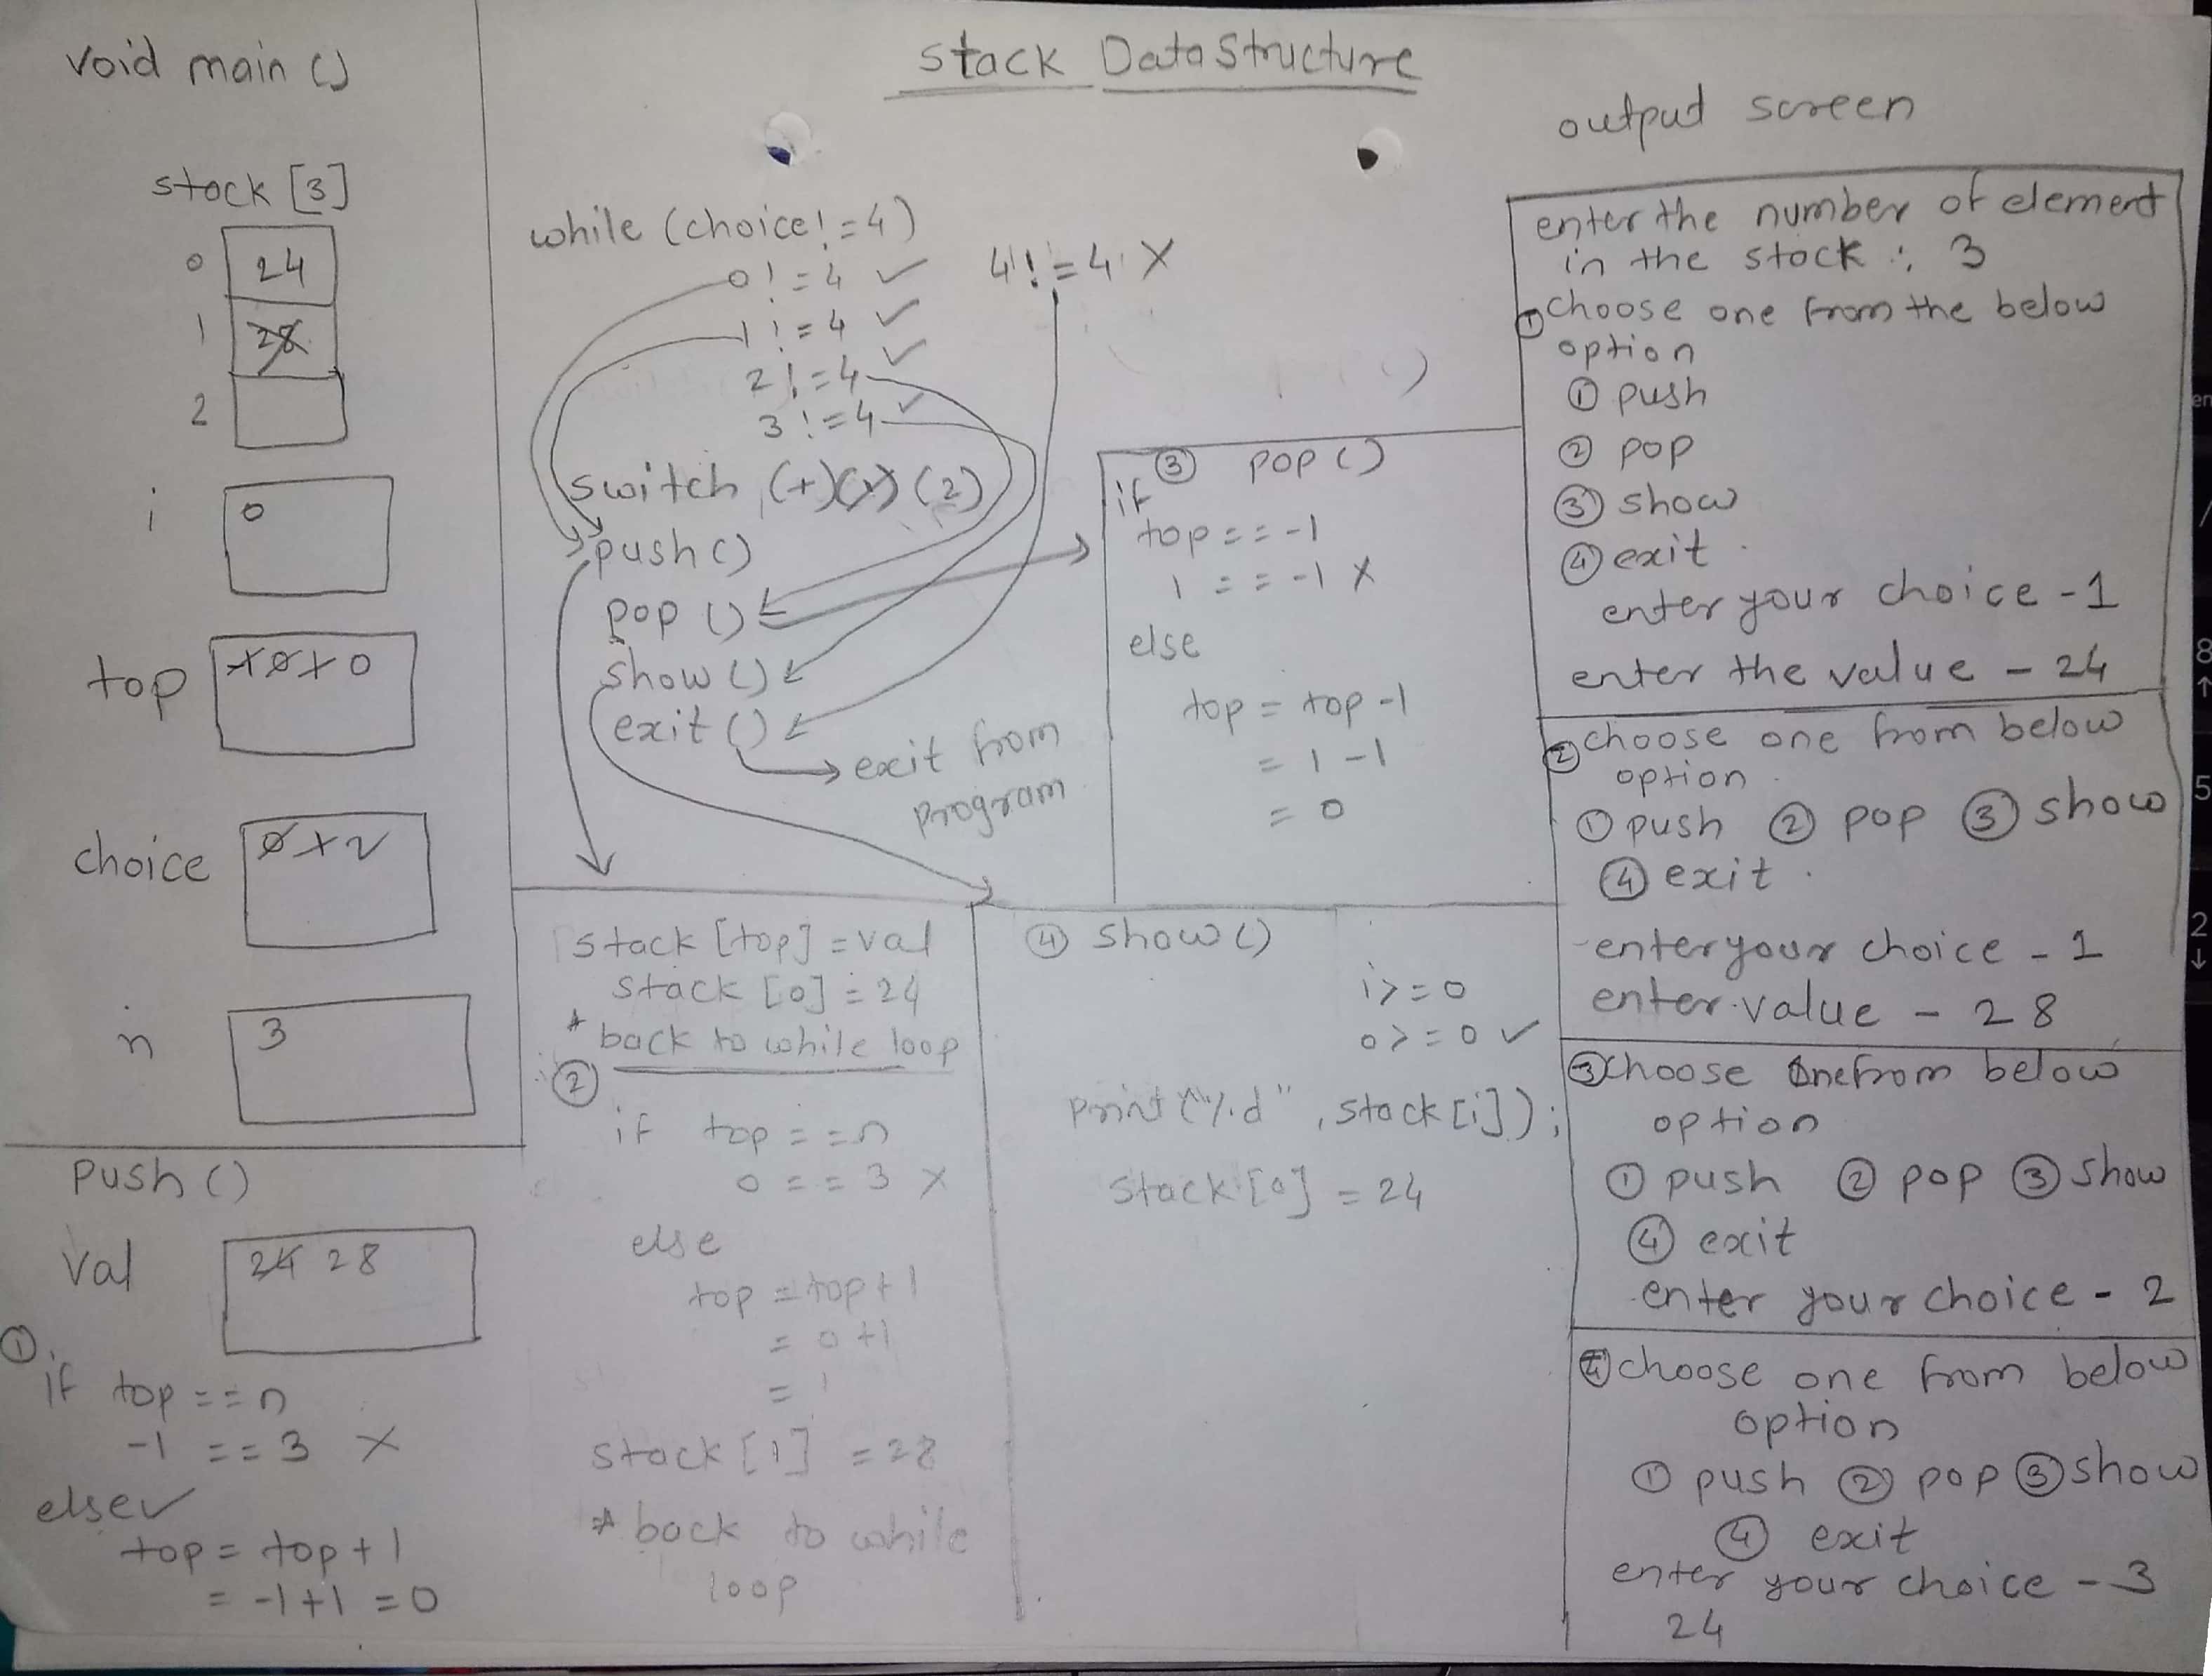 void main ()
stack [3]
0 24
1 28
2
i 0
top -1 0 1 0
choice 0 1 2
n 3
push ()
val 24 28
①
if top == n
-1 == 3 X
else ✓
top = top + 1
= -1+1 = 0
Stack Data Structure
while (choice! = 4)
0! = 4 ✓
1! = 4 ✓
2! = 4 ✓
3! = 4 ✓
4! = 4 X
switch (1)(1)(2)
push ()
pop ()
show ()
exit ()
exit from
program
③ pop ()
if
top == -1
1 == -1 X
else
top = top -1
= 1 -1
= 0
stack [top] = val
stack [0] = 24
* back to while loop
②
if top == n
0 == 3 X
else
top = top + 1
= 0 +1
= 1
stack [1] = 28
* back to while
loop
④ show ()
i >= 0
0 >= 0 ✓
print ("%d" , stack [i]);
stack [0] = 24
output screen
enter the number of element
in the stack : 3
① choose one from the below
option
① push
② pop
③ show
④ exit .
enter your choice - 1
enter the value - 24
② choose one from below
option .
① push ② pop ③ show
④ exit .
enter your choice - 1
enter value - 28
③ choose one from below
option
① push ② pop ③ show
④ exit
enter your choice - 2
④ choose one from below
option
① push ② pop ③ show
④ exit
enter your choice - 3
24